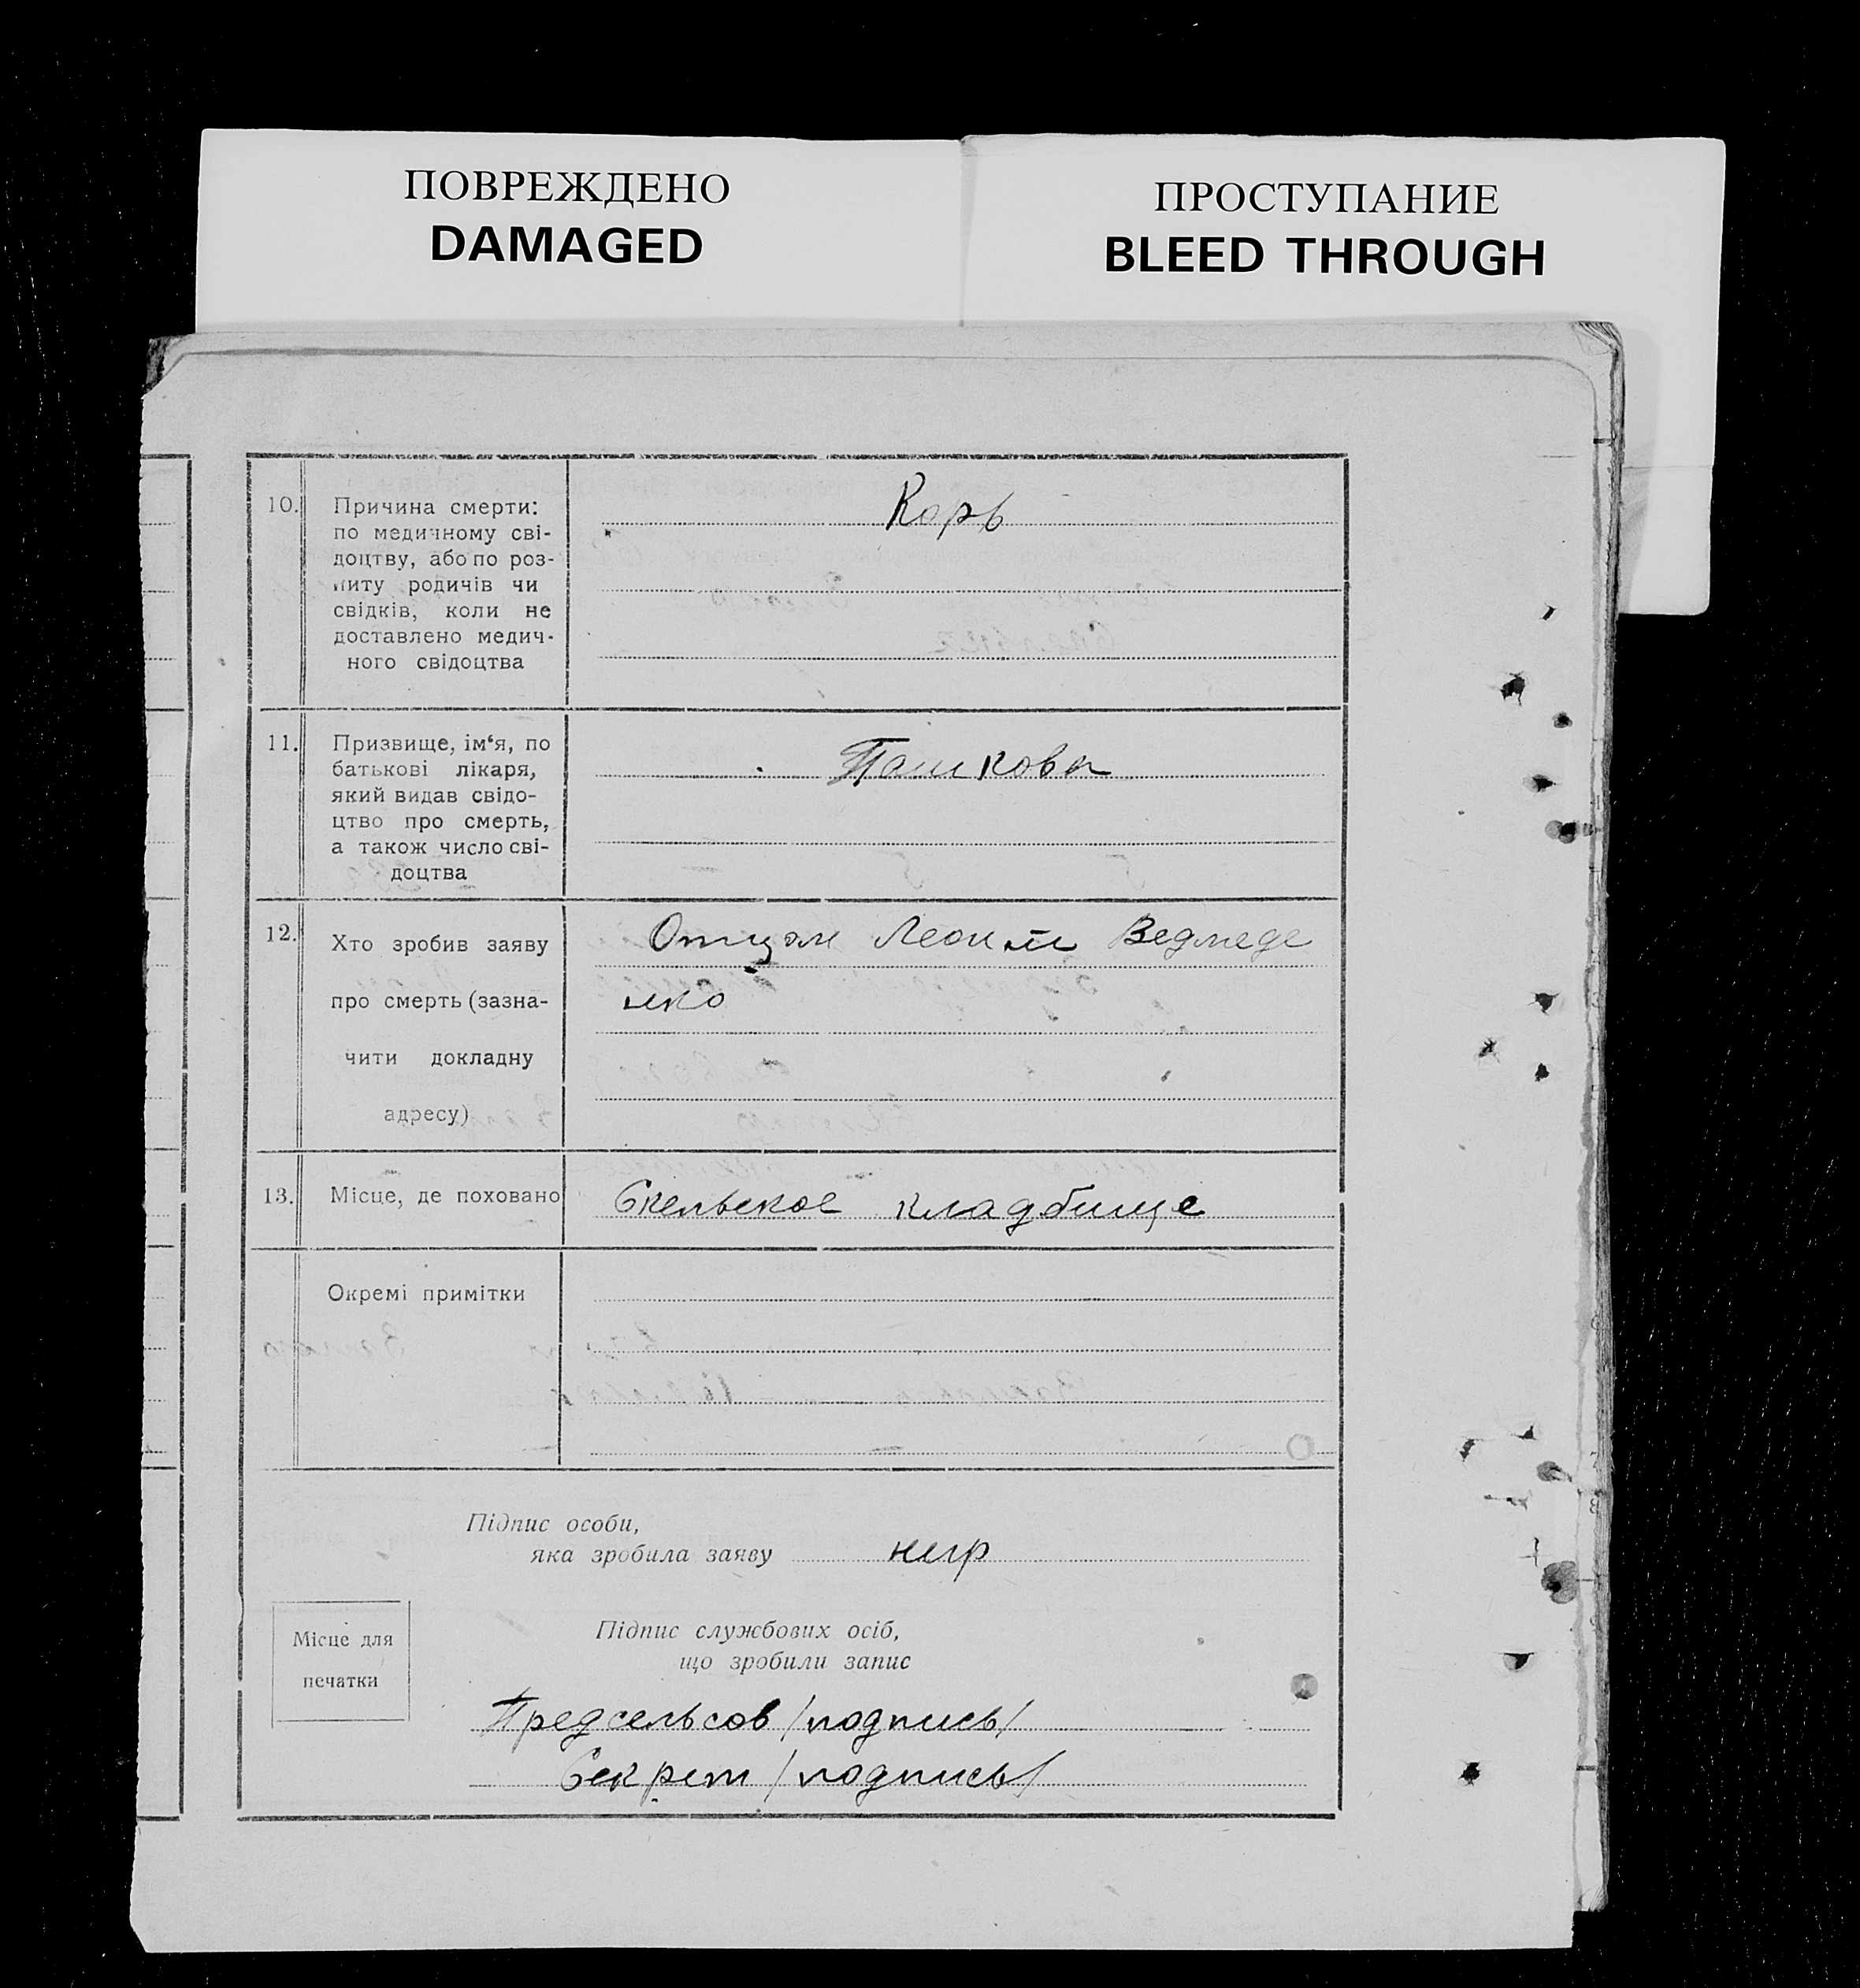 ПОВРЕЖДЕНО
DAMAGED
ПРОСТУПАНИЕ
BLEED THROUGH
10. Причина смерти:
по медичному сві-
доцтву, або по роз-
питу родичів чи
свідків, коли не
доставлено медич-
ного свідоцтва
Корь
11. Призвище, ім‘я, по
батькові лікаря,
який видав свідо-
цтво про смерть,
а також число сві-
доцтва
Пашкова
12. Хто зробив заяву
про смерть (зазна-
чити докладну
адресу)
Ведмеде
нко
13. Місце, де поховано
Скельское кладбище
Окремі примітки
Підпис особи,
яка зробила заяву
негр
Місце для
печатки
Підпис службових осіб,
що зробили запис
Предсельсов /подпись/
Секрет /подпись/